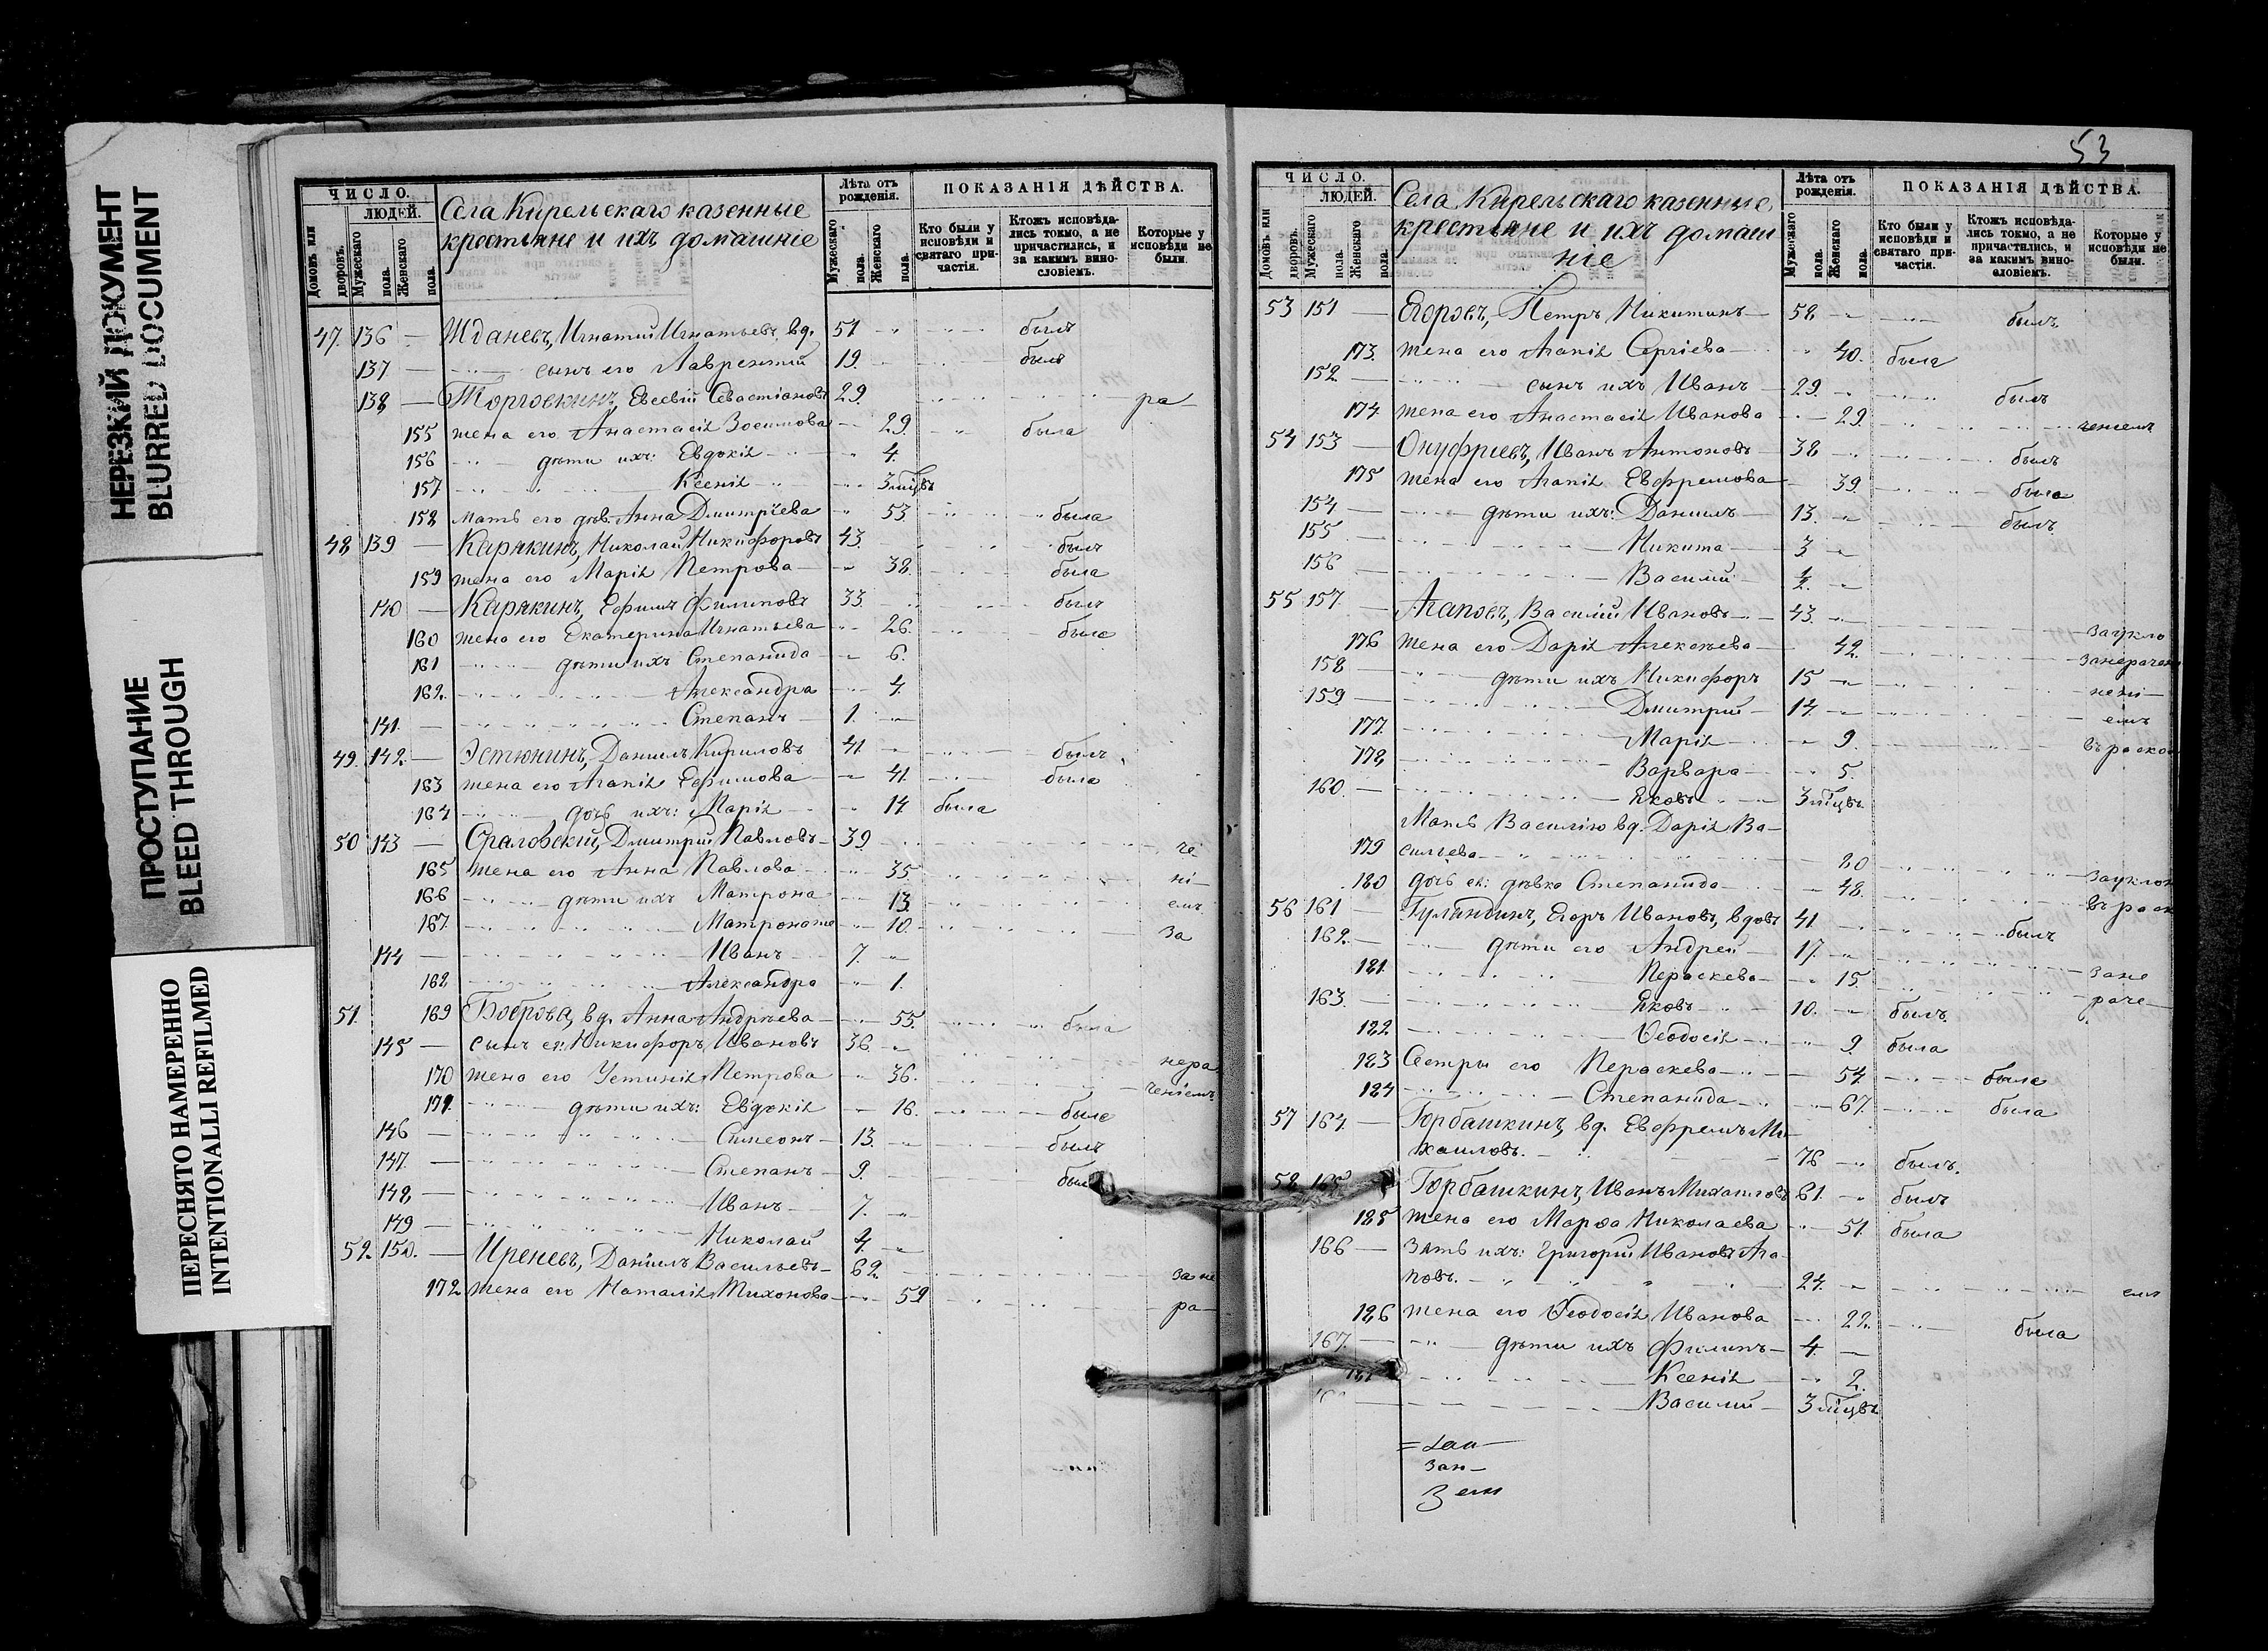 НЕРЕЗКИЙ ДОКУМЕНТ
BLURRED DOCUMENT
ПРОСТУПАНИЕ
BLEED THROUGH
ПЕРЕСНЯТО НАМЕРЕННО
INTENTIONALLI REFILMED
ЧИСЛО.
ЛЮДЕЙ.
Домовъ или дворовъ.
Мужескаго пола.
Женскаго пола.
Села Кирельскаго казенные
крестьяне и ихъ домашніе
Лѣта отъ рожденія.
Мужескаго пола.
Женскаго пола.
ПОКАЗАНІЯ ДѢЙСТВА.
Кто были у исповѣди и святаго причастія.
Ктожъ исповѣдались токмо, а не причастились, и за какимъ винословіемъ.
Которые у исповѣди не были.
47. 136 — Жданевъ, Игнатій Игнатьевъ, вд. 51 былъ
137 — сынъ его Лаврентій 19. былъ
138 — Торговкинъ, Евсевій Севастіановъ 29. ра-
155 жена его Анастасія Зосимова 29. была
156 дѣти ихъ: Евдокія 4.
157 Ксенія 3 мѣцвъ
158 мать его дѣв. Анна Дмитріева 53. была
48 139 — Карякинъ, Николай Никифоровъ 43. былъ
159 жена его Марія Петрова 38. была
140 — Карякинъ, Ефимъ Филиповъ 33. былъ
160 жена его Екатерина Игнатьева 26. была
161 дѣти ихъ Степанида 6.
162. Александра 4.
141. — Степанъ 1.
49. 142. — Эстюнинъ, Даніилъ Кириловъ 41. былъ
163 жена его Агапія Ефимова 41. была
164 дочь ихъ: Марія 14 была
50 143 — Сраловскій, Дмитрий Павловъ 39. че-
165 жена его Анна Павлова 35. ні-
166 дѣти ихъ Матрона 13. емъ
167. Матрона же 10. за
144 — Иванъ 7.
168 Александра 1.
51. 169 Боброва, вд. Анна Андрѣева 55. была
145 — сынъ ея: Никифоръ Ивановъ 36.
170 жена его Устинія Петрова 36. нера
171. дѣти ихъ: Евдокія 16. ченіемъ была
146 — Симеонъ 13. былъ
147. — Степанъ 9. был
148 — Иванъ 7.
149 — Николай 4.
52. 150. — Иреневъ, Даніилъ Васильевъ 62. зане
172 жена его Наталія Тихонова 59 ра-
53
ЧИСЛО.
ЛЮДЕЙ.
Домовъ или дворовъ.
Мужескаго пола.
Женскаго пола.
Села Кирельскаго казенные,
крестьяне и ихъ домаш
ніе
Лѣта отъ рожденія.
Мужескаго пола.
Женскаго пола.
ПОКАЗАНІЯ ДѢЙСТВА.
Кто были у исповѣди и святаго причастія.
Ктожъ исповѣдались токмо, а не причастились, и за какимъ винословіемъ.
Которые у исповѣди не были.
53 151 — Егоровъ, Петръ Никитинъ 58 былъ
173. жена его Агапія Сергіева 40. была
152. — сынъ ихъ Иванъ 29. былъ
174 жена его Анастасія Иванова 29. ченіемъ
54 153 — Онуфріевъ, Иванъ Антоновъ 38 былъ
175 жена его Агапія Евфремова 39. была
154 — дѣти ихъ: Даніилъ 13. былъ
155 — Никита 3
156 — Василій ½.
55 157. — Агаповъ, Василій Ивановъ 43. заукло
176 жена его Дарія Алексѣева 42. занерачен
158 дѣти ихъ Никифоръ 15 нені-
159 — Дмитрий 14. емъ
177. Марія 9. въ раскол
178 Варвара 5.
160. — Яковъ 3 мѣцвъ
Мать Василію вд. Дарія Ва-
179 сильева 80 зауклон
180 дочь ея: дѣвка Степанида 48. въ раск
56 161 — Гуляндинъ, Егоръ Ивановъ, вдовъ 41. былъ
162. — дѣти его Андрей 17. зане
181. Параскева 15. раче-
163. — Яковъ 10. былъ
182 Ѳеодосія 9. была
183 Сестры его Параскева 54. была
184 Степанида 67. была
57 164. — Горбашкинъ, вд. Евфремъ Ми-
хаиловъ. 76 былъ.
58 165 Горбашкинъ, Иванъ Михаиловъ 61. былъ
185 жена его Марѳа Николаева 51. была
166 — Зять ихъ: Григорій Ивановъ Ага-
повъ. 24. емъ
186 жена его Ѳеодосія Иванова 22. была
167. — дѣти ихъ Филипъ 4.
187 Ксенія 2.
Василій 3 мѣцвъ